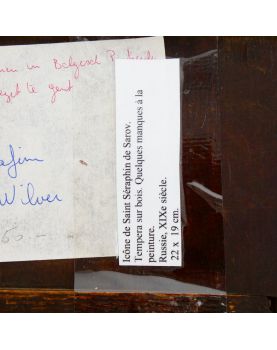 in Belgisch
te gent
Wilver
Icône de Saint Séraphin de Sarov.
Tempera sur bois. Quelques manques à la
peinture.
Russie, XIXe siècle.
22 x 19 cm.